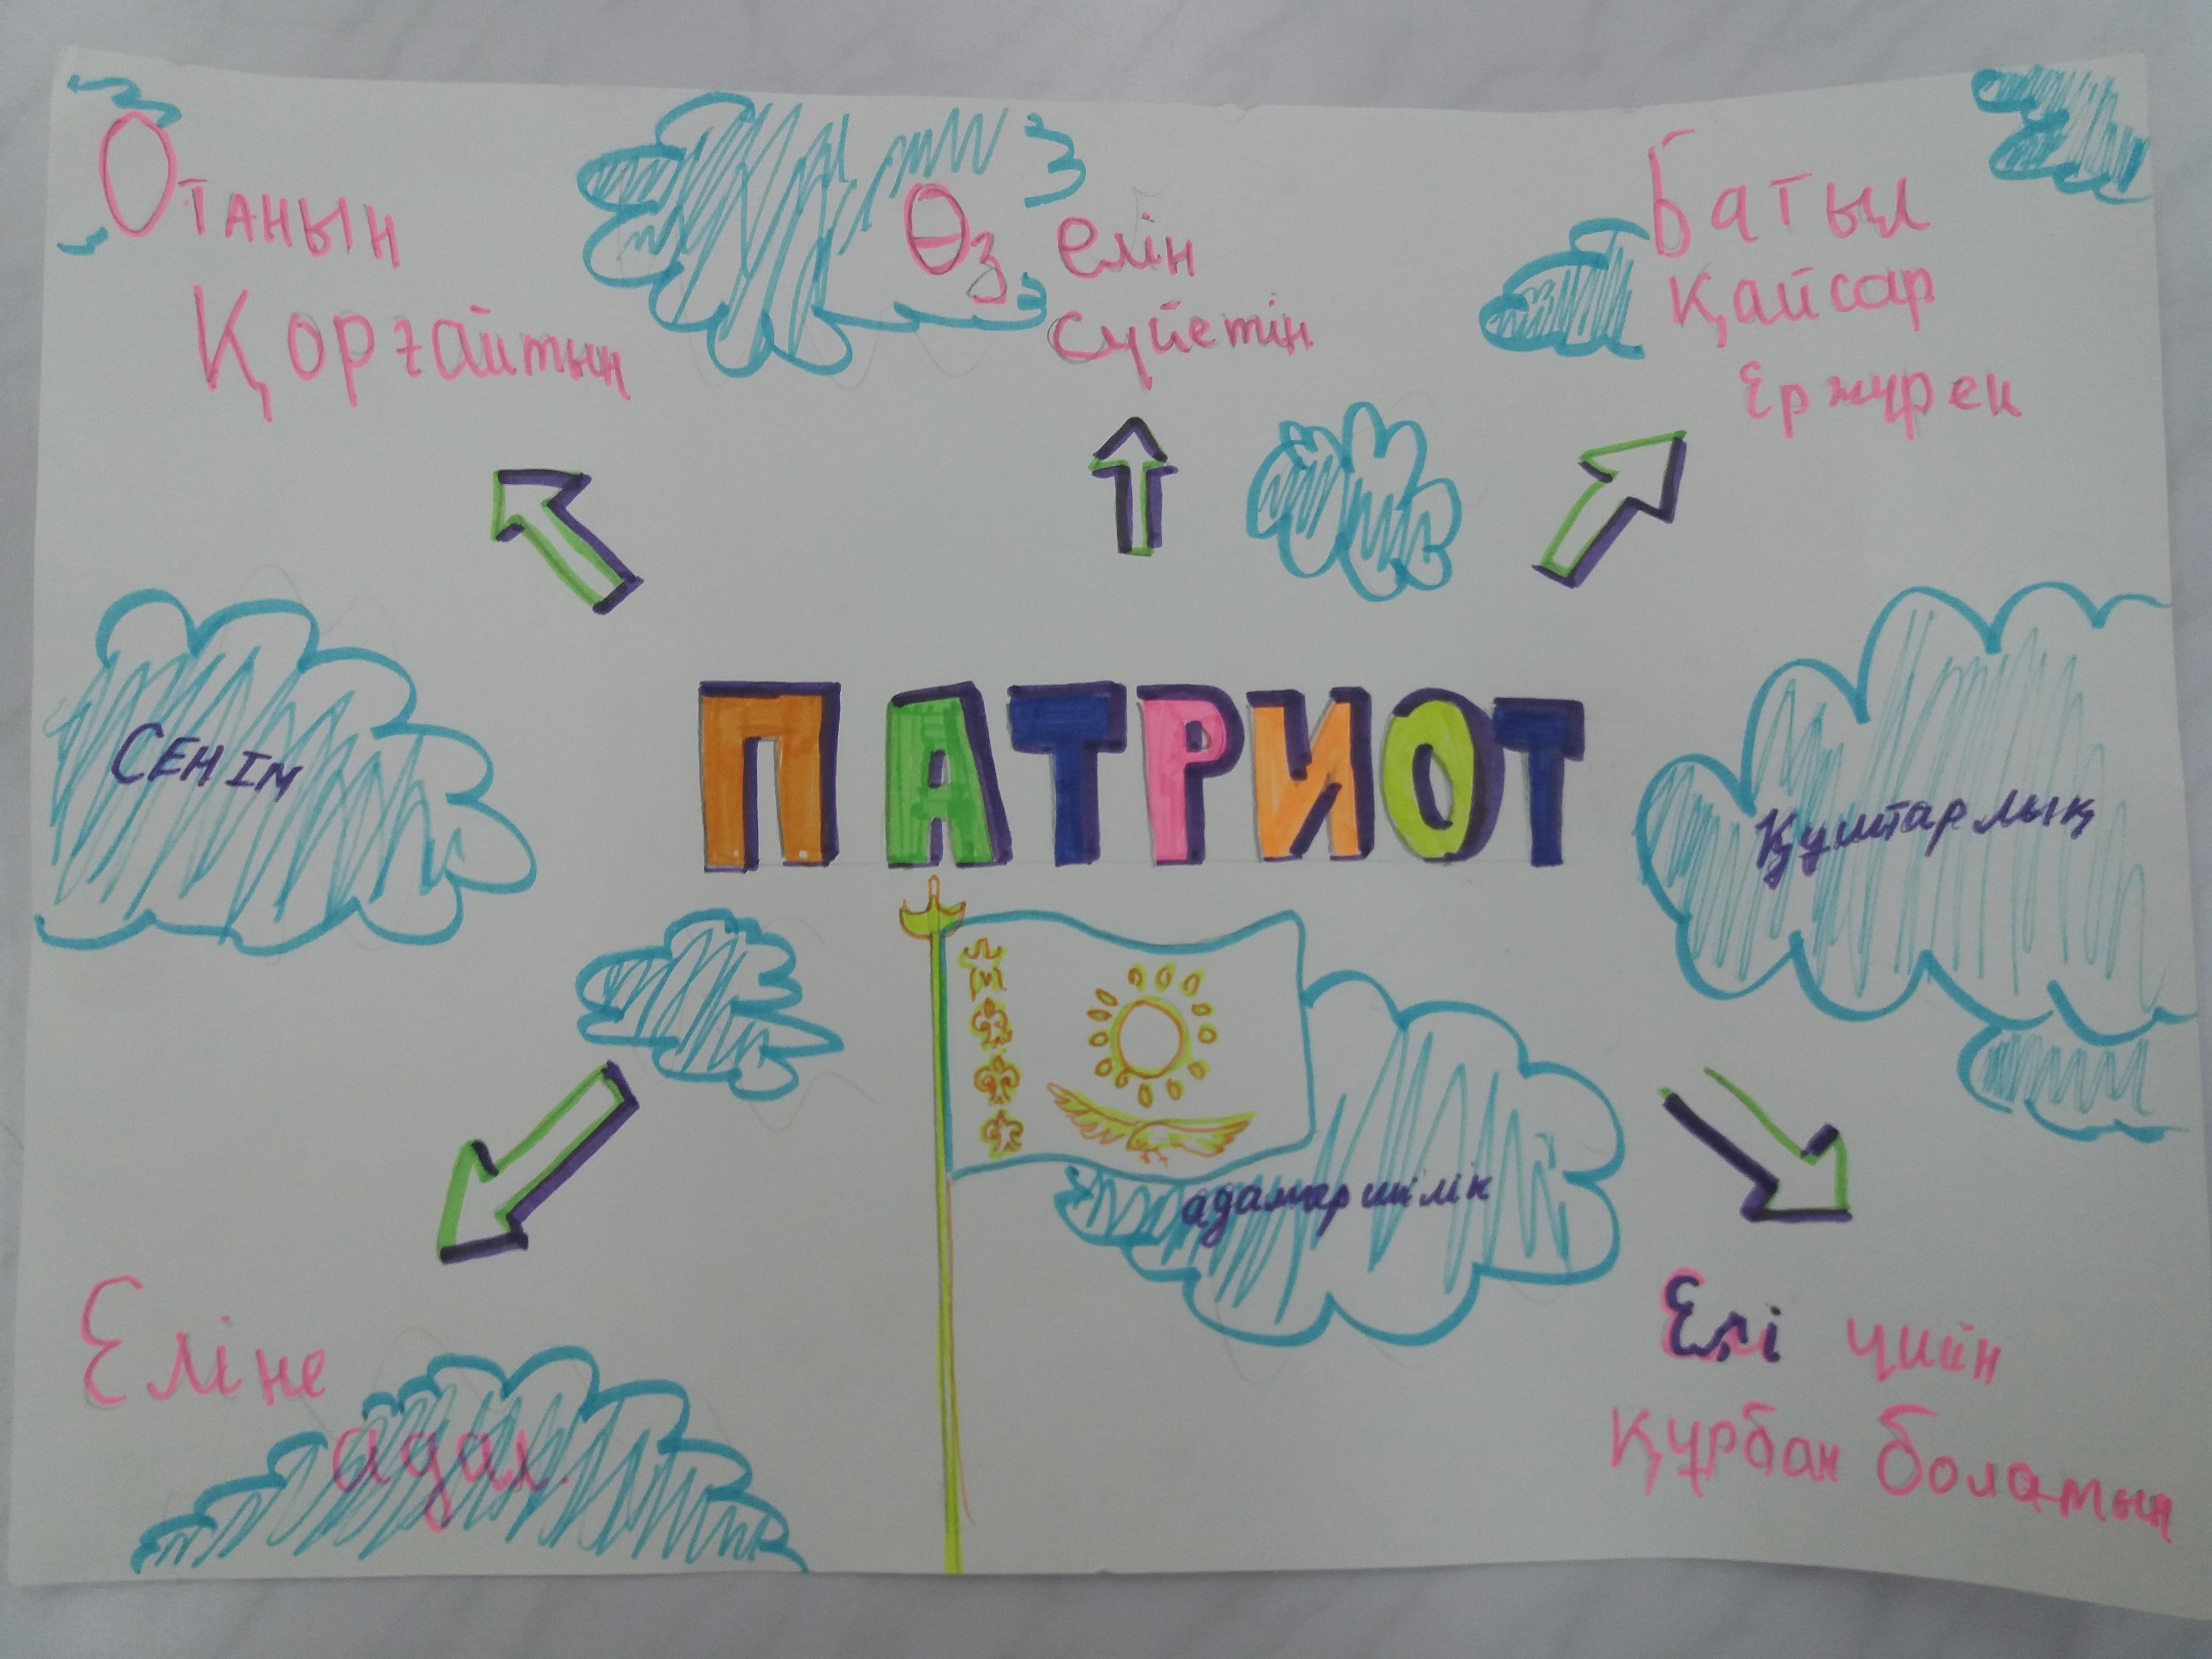 Отанын
Қорғайтын
Өз елін
сүйетін
Батыл
Қайсар
Ержүрек
Сенім
ПАТРИОТ
Құштарлық
адамгершілік
Еліне
адал.
Елі үшін
Құрбан болатын